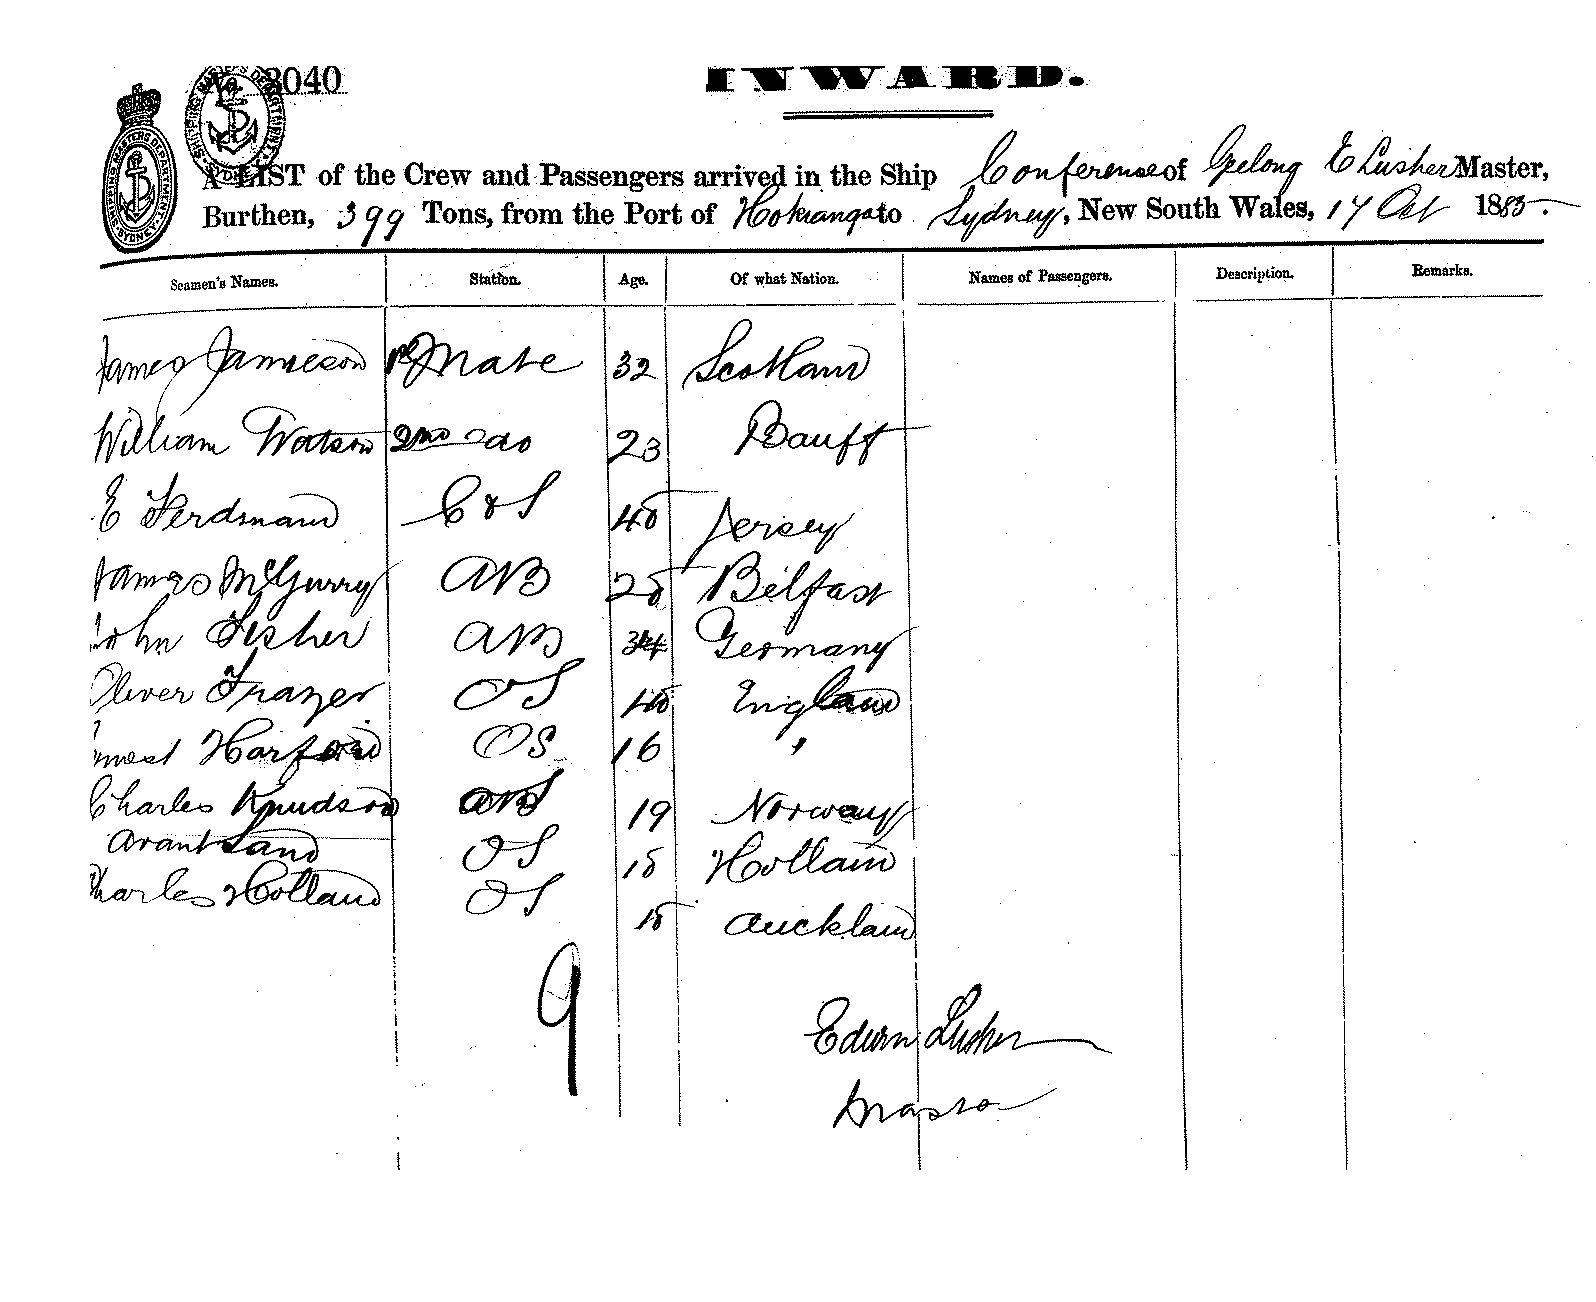 No 3040
INWARD.
A LIST of the Crew and Passengers arrived in the Ship Conference of Geelong E Lusher Master,
Burthen, 399 Tons, from the Port of Hokianga to Sydney, New South Wales, 17 Oct 1885.
Seamen's Names. Station. Age. Of what Nation. Names of Passengers. Description. Remarks.
James Jamieson Mate 32 Scotland
William Watson 2nd do 23 Banff
E Ferdinand C & S 45 Jersey
James McGurry AB 25 Belfast
John Fisher AB Germany
Oliver Frazer OS England
Harford OS 16 "
Charles Knudson 19 Norway
OS Holland
Charles Holland OS Auckland
9
Edwin Lusher
Master